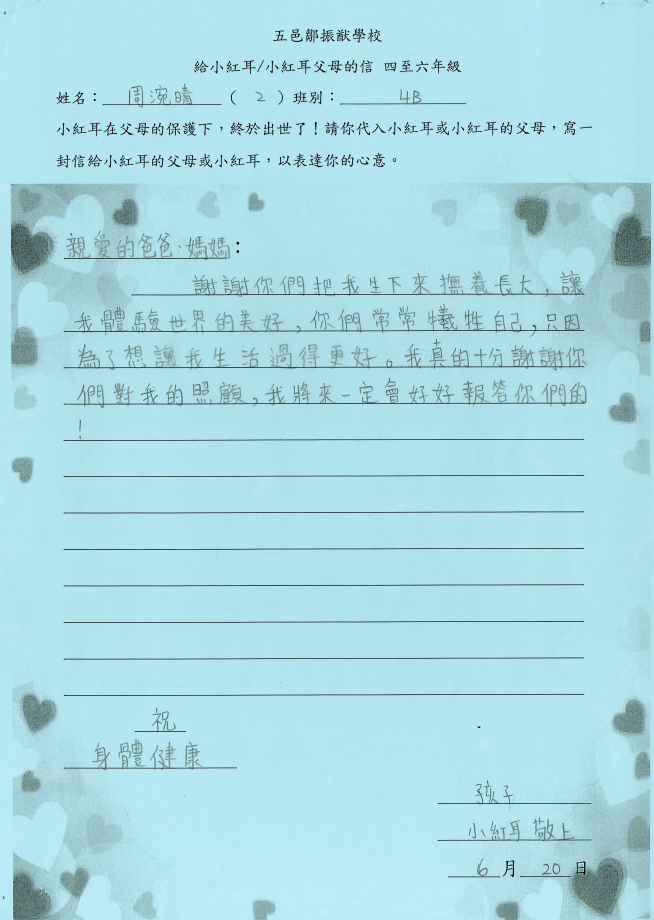 五邑鄒振猷學校
給小紅耳/小紅耳父母的信 四至六年級
姓名：周涴晴 ( 2 ) 班別：4B
小紅耳在父母的保護下，終於出世了！請你代入小紅耳或小紅耳的父母，寫一
封信給小紅耳的父母或小紅耳，以表達你的心意。
親愛的爸爸、媽媽：
謝謝你們把我生下來撫養長大，讓
我體驗世界的美好，你們常常犧牲自己，只因
為了想讓我生活過得更好。我真的十分謝謝你
們對我的照顧，我將來一定會好好報答你們的
！
祝
身體健康
孩子
小紅耳 敬上
6 月 20 日